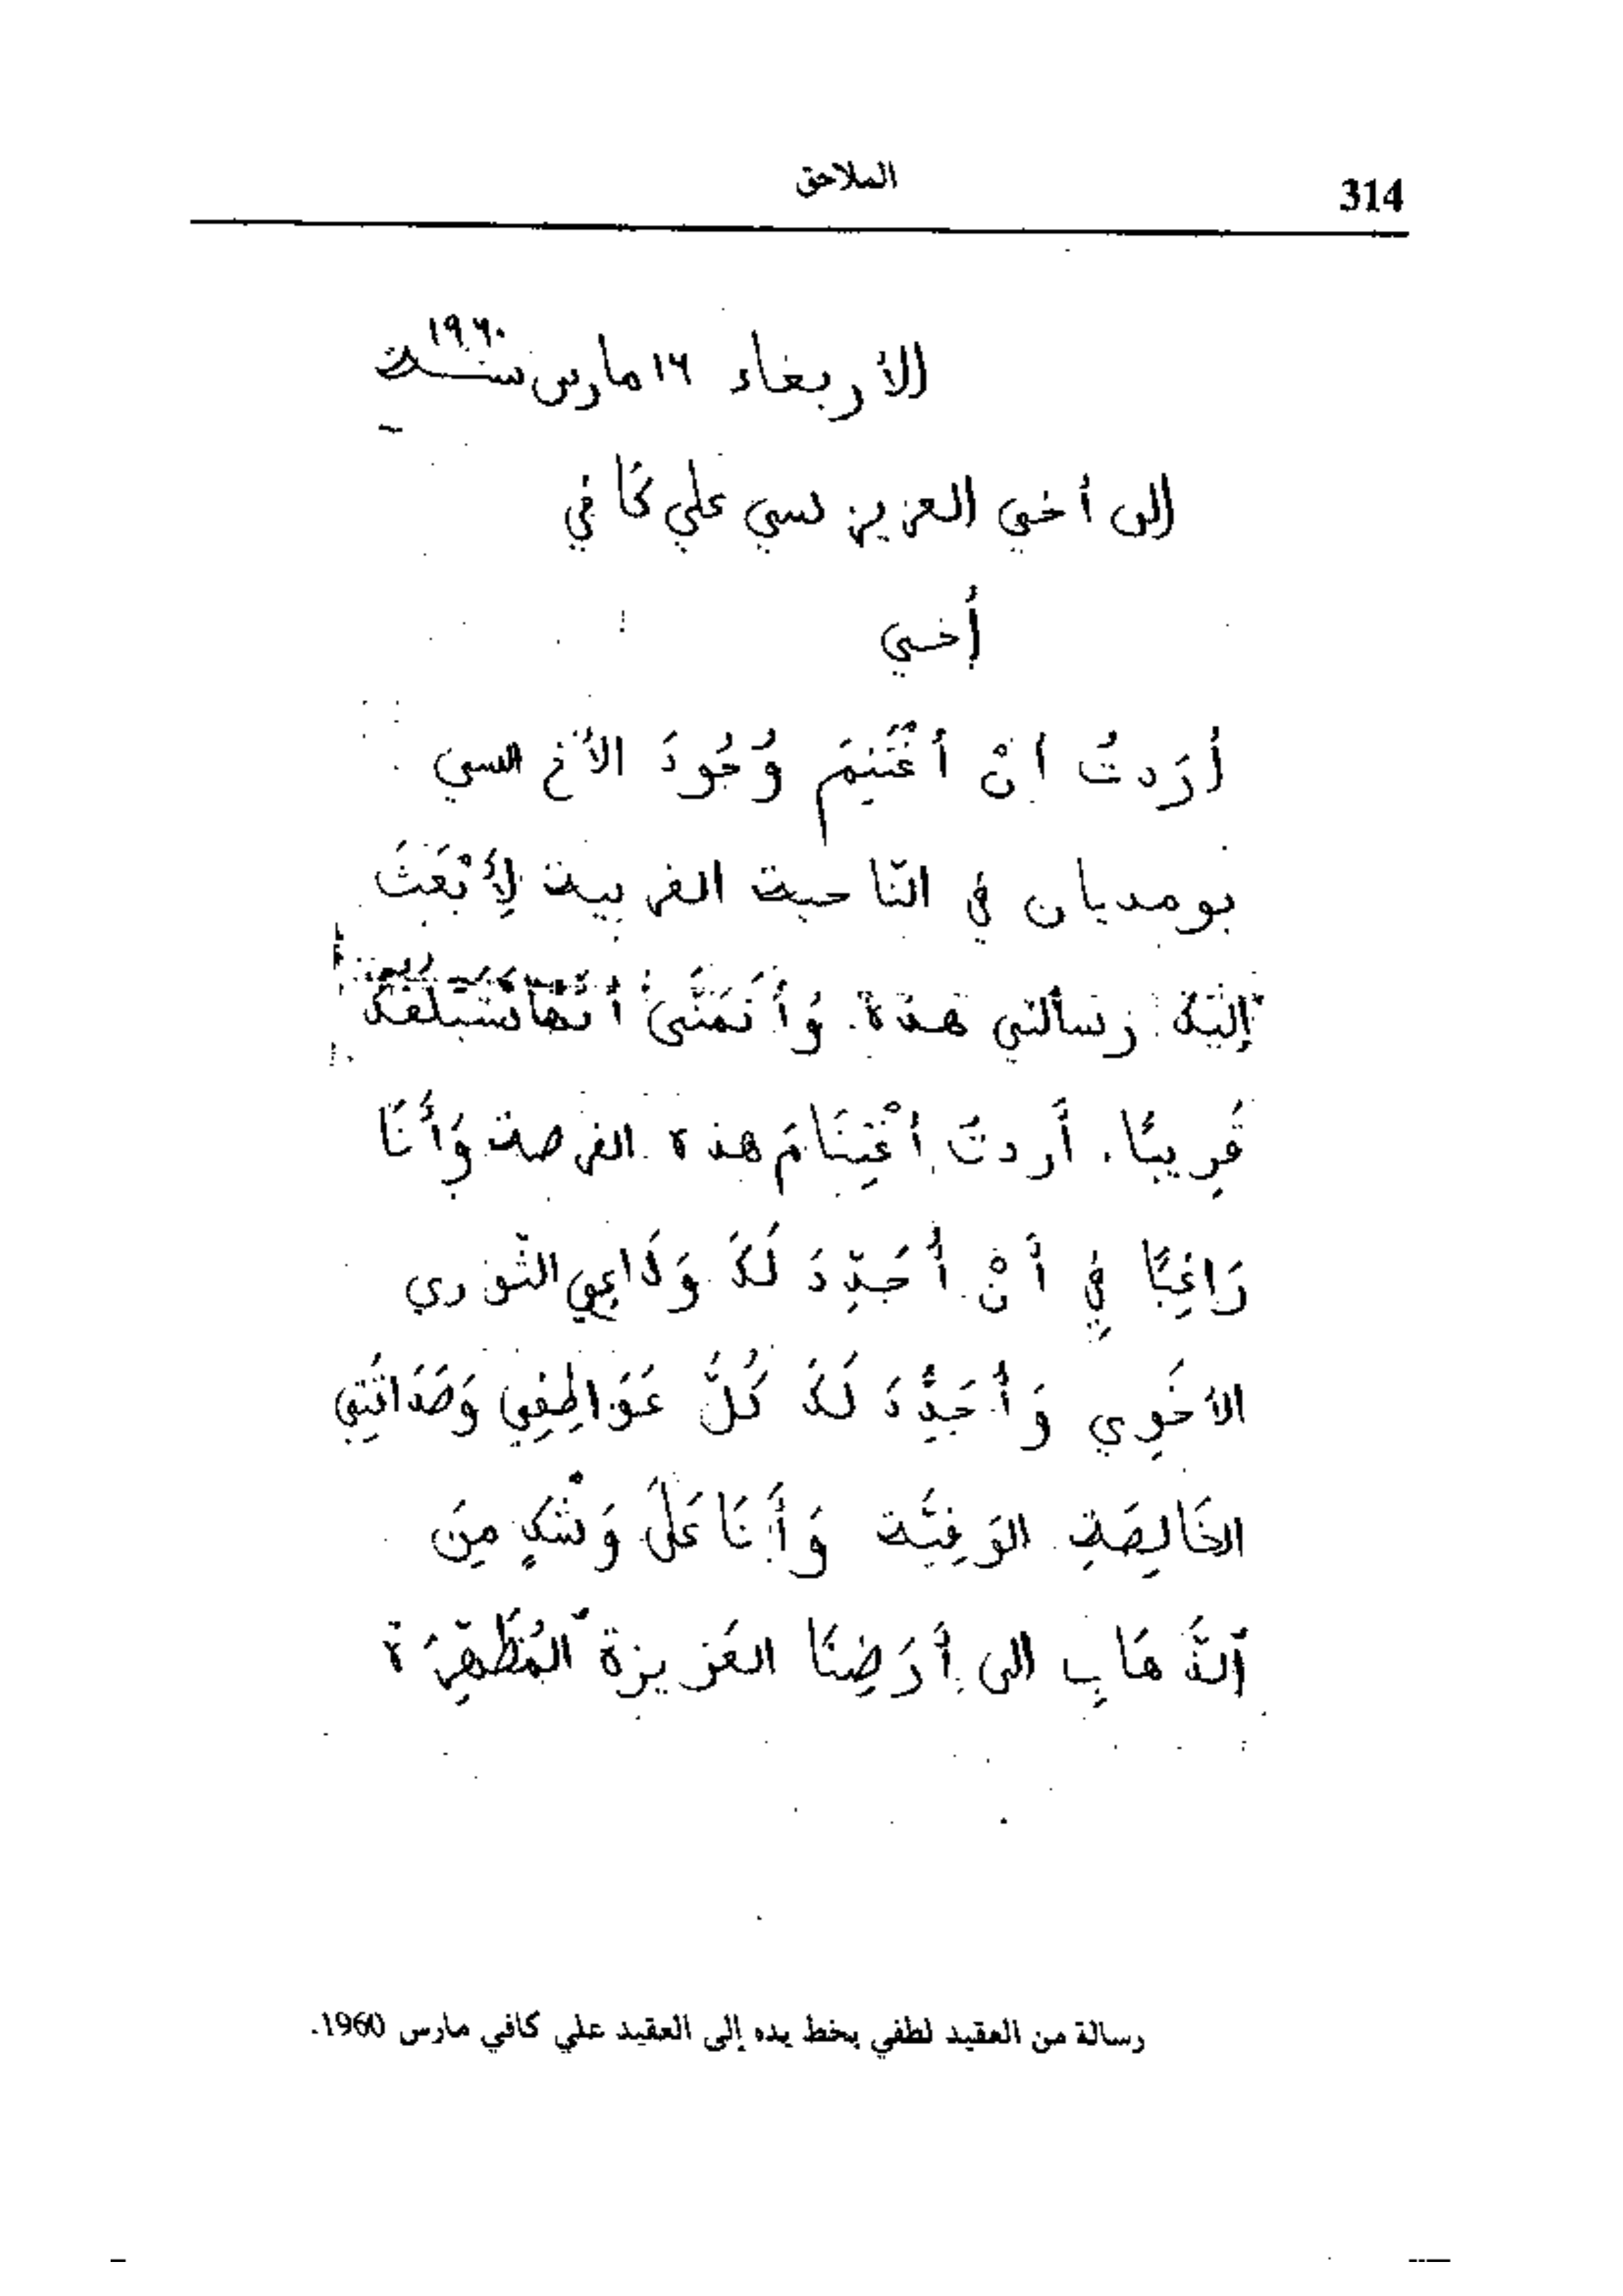 314
الملاحق
الأربعاء ١٦ مارس سنة ١٩٦٠
إلى أخي العزيز سي علي كافي
أخي
أَرَدتُ أنْ أغْتَنِمَ وُجُودَ الأخ السي
بومديان في النّاحية الغربية لِأَبْعَثَ
إليكَ رسالتي هذه وَأَتَمَنَّى أنّهَا سَتَبلغكَ
قَرِيبًا. أَردتُ إغْتِنَامَ هذه الفرصة وَأَنَا
رَاغِبًا فِي أَنْ أُجَدِّدَ لَكَ وَلَائِي الثّوري
الأخَوِي وَأُجَدِّدَ لَكَ كُلَّ عَوَاطِفِي وَصَدَاقَتِي
الخَالِصَةِ الوَفِيَّة وَأَنَا عَلَى وَشْكٍ مِنَ
الذَّهَابِ الى أَرَضِنَا العَزيزة المُطَهَّرَة
رسالة من العقيد لطفي بخط يده إلى العقيد علي كافي مارس 1960.